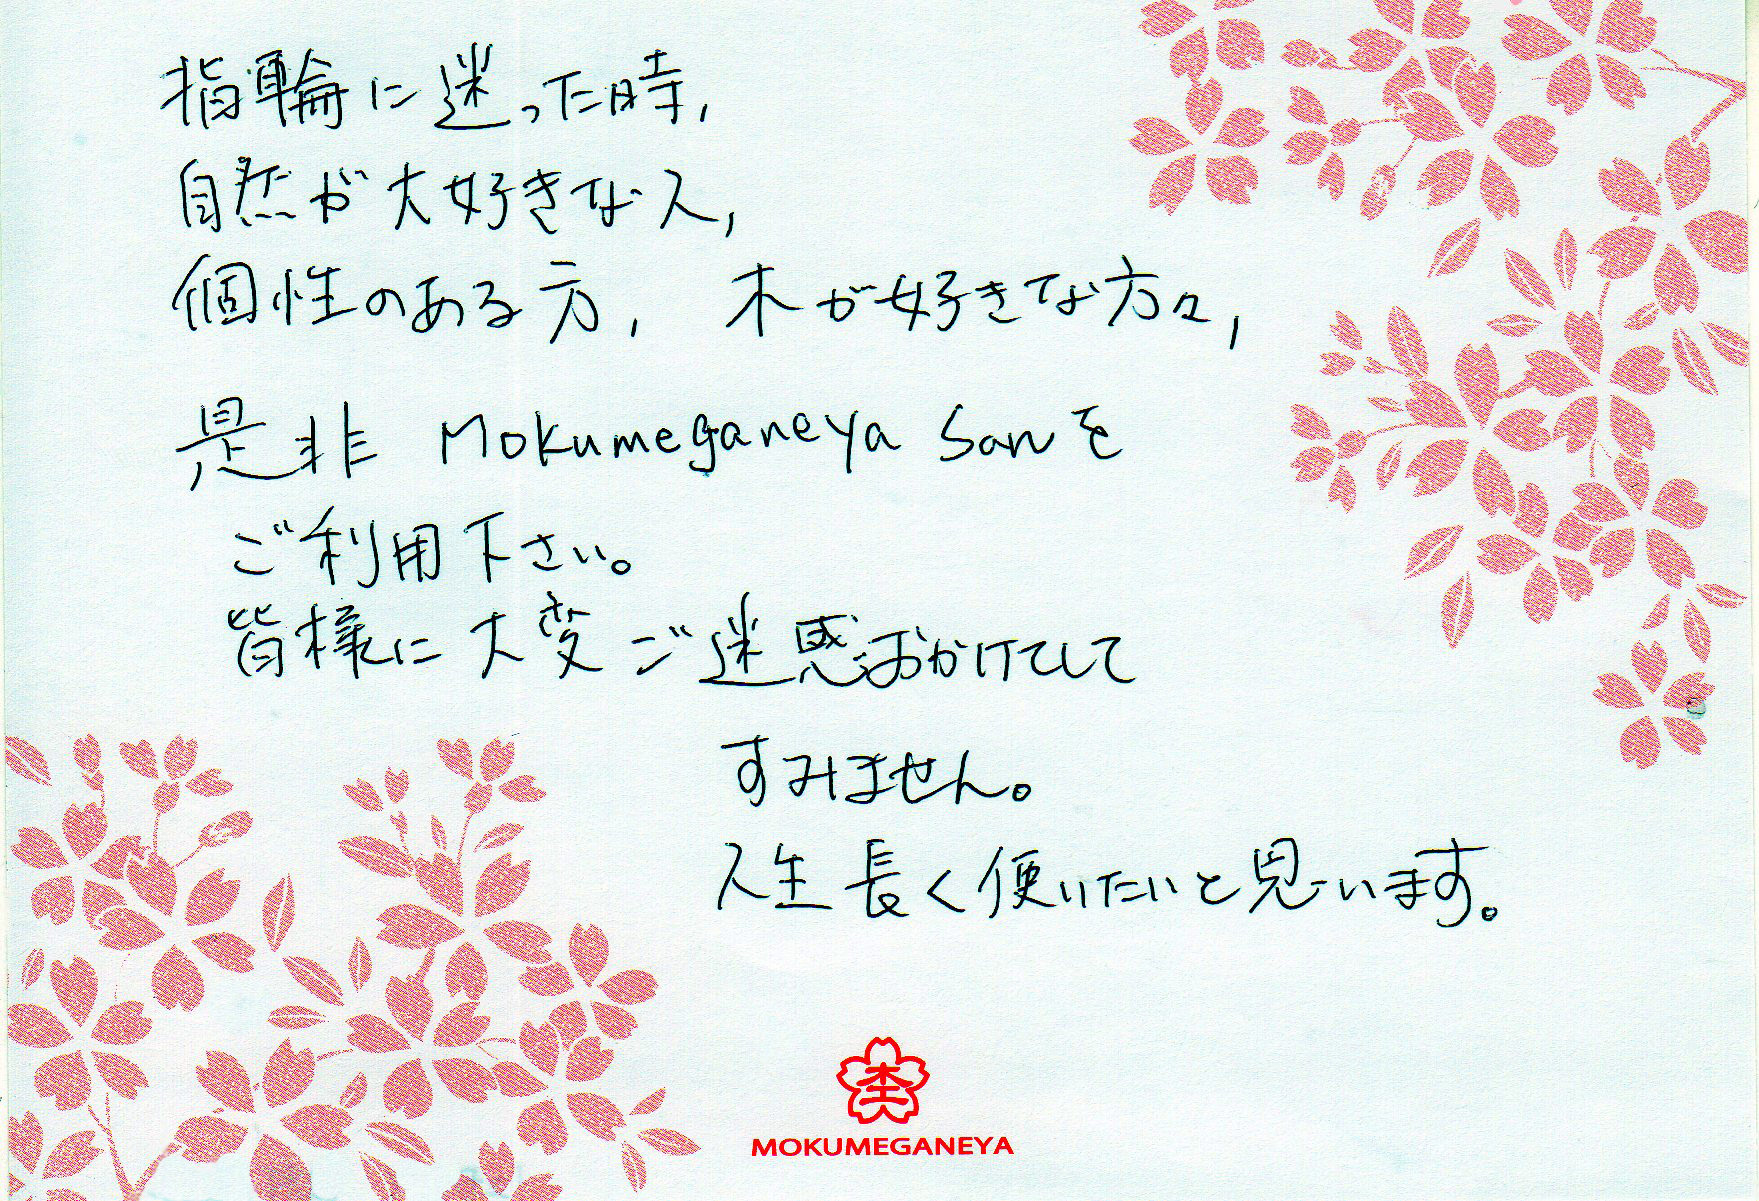 指輪に迷った時,
自然が大好きな人,
個性のある方, 木が好きな方々,
是非 Mokumeganeya Sanを
ご利用下さい。
皆様に大変ご迷惑おかけてして
すみません。
人生長く使いたいと思います。
MOKUMEGANEYA